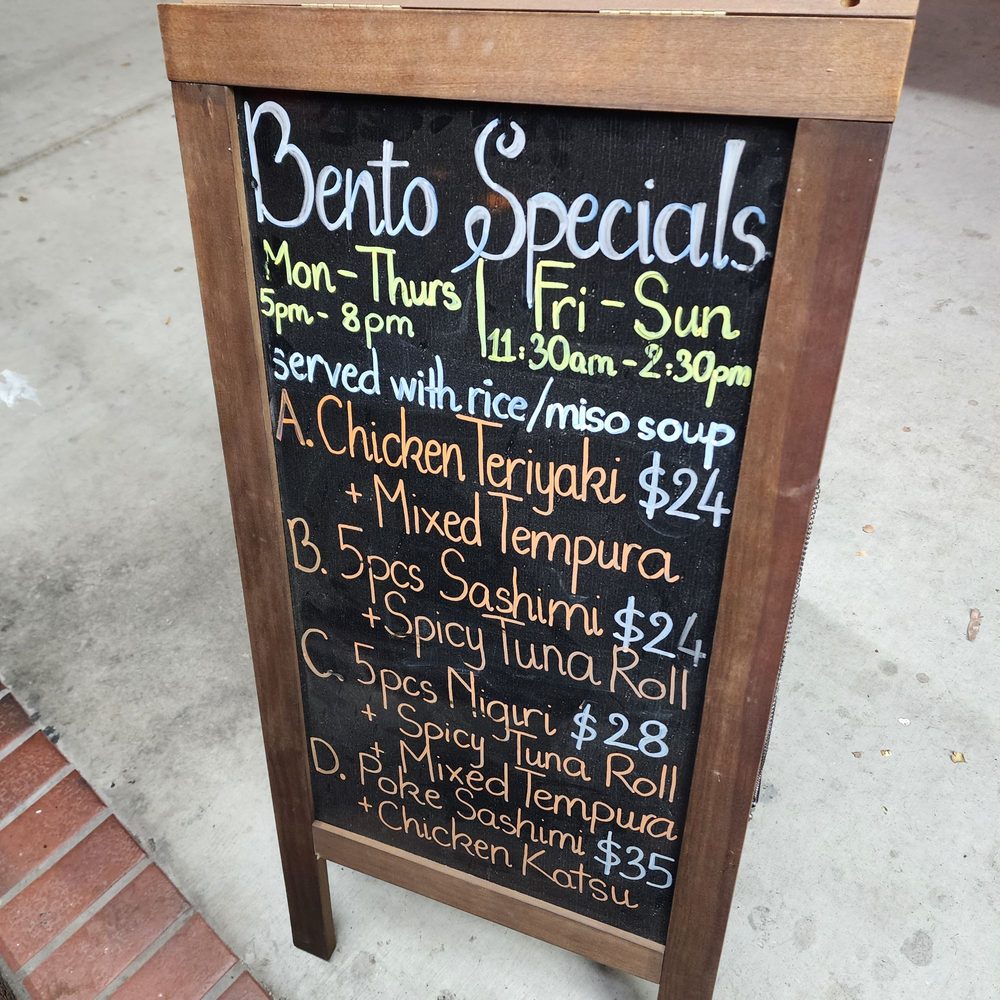 Bento Specials
Mon-Thurs | Fri-Sun
5pm-8pm 11:30am-2:30pm
served with rice/miso soup
A. Chicken Teriyaki $24
+ Mixed Tempura
B. 5pcs Sashimi $24
+ Spicy Tuna Roll
C. 5pcs Nigiri $28
+ Spicy Tuna Roll
+ Mixed Tempura
D. Poke Sashimi $35
+ Chicken Katsu